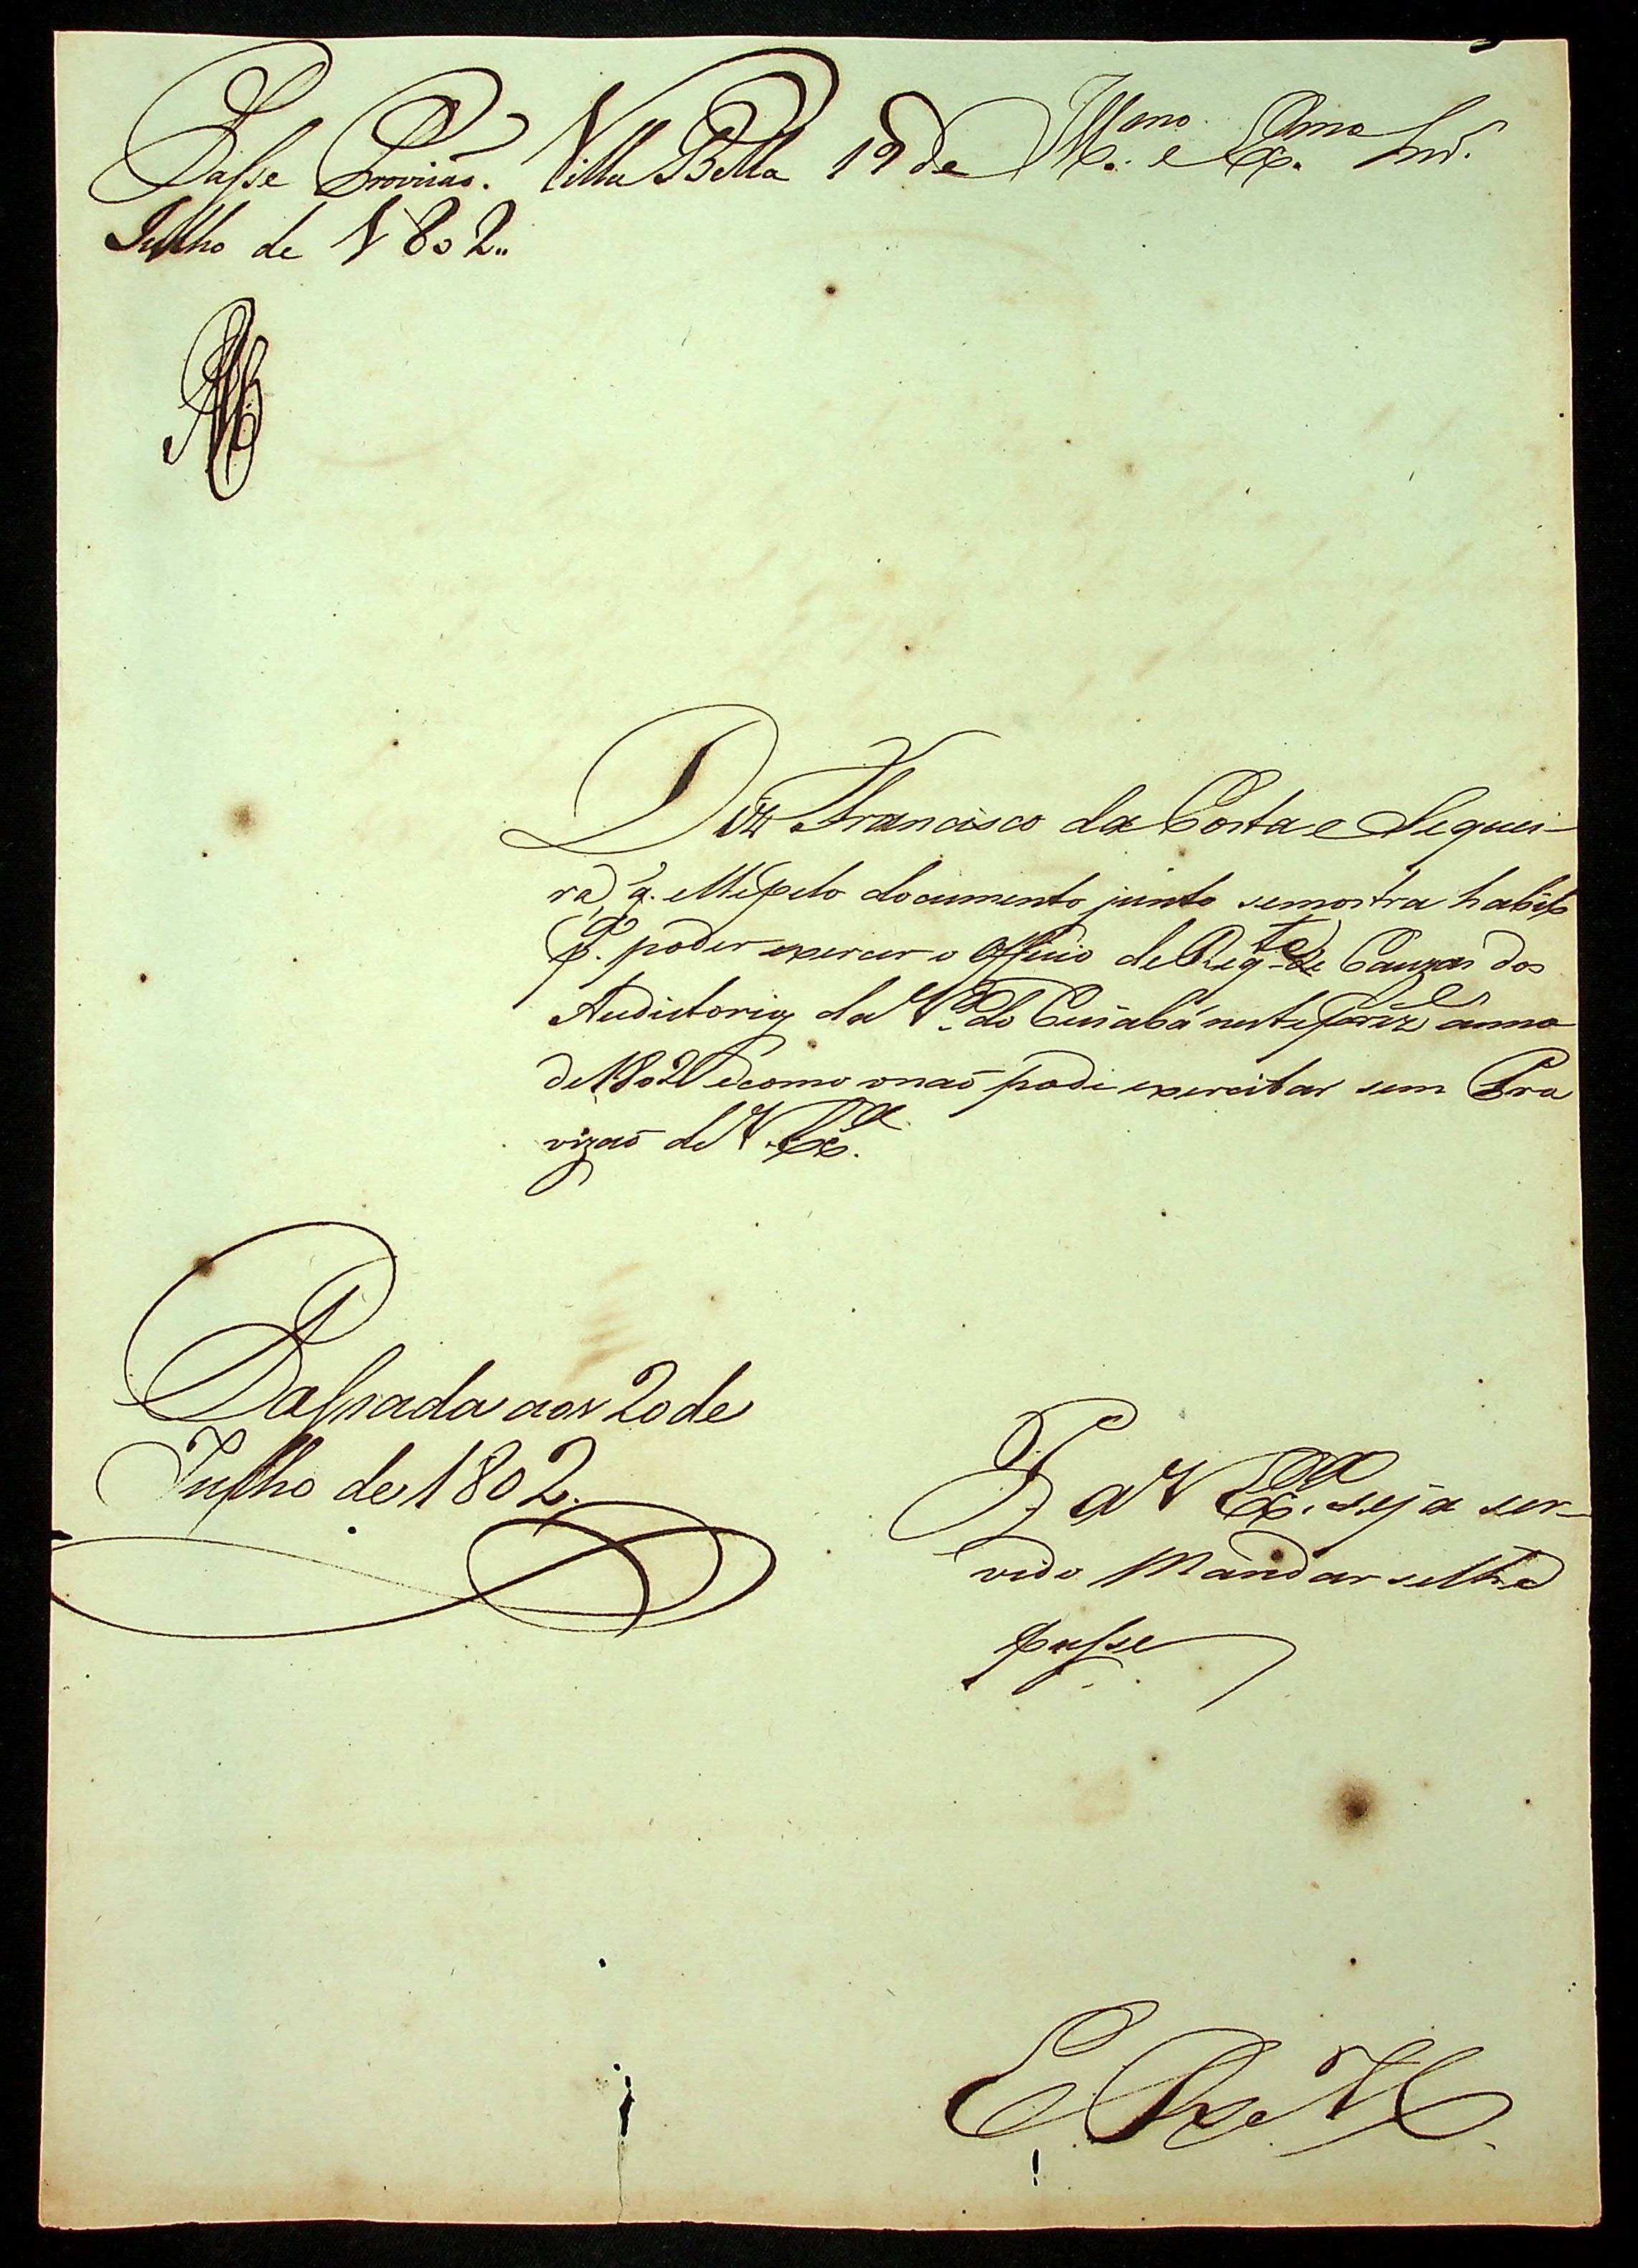 Passe Provizaõ. Villa Bella 19 de
Julho de 1802..
Illmo. e Exmo. Snr.
Diz Francisco da Costa e Sequei-
ra, q. elle pelo documento junto semostra habil
p.a poder exercer o Officio de Reqte. de Cauzas dos
Auditorios da Va. do Cuiabá neste prez.e anno
de 1802 ecomo onaõ pode exercitar sem Pro
vizaõ de V. Exa.
Passada aos 20 de
Julho de 1802.
P. a V. Exa. seja ser-
vido Mandar selhe
passe
E R M